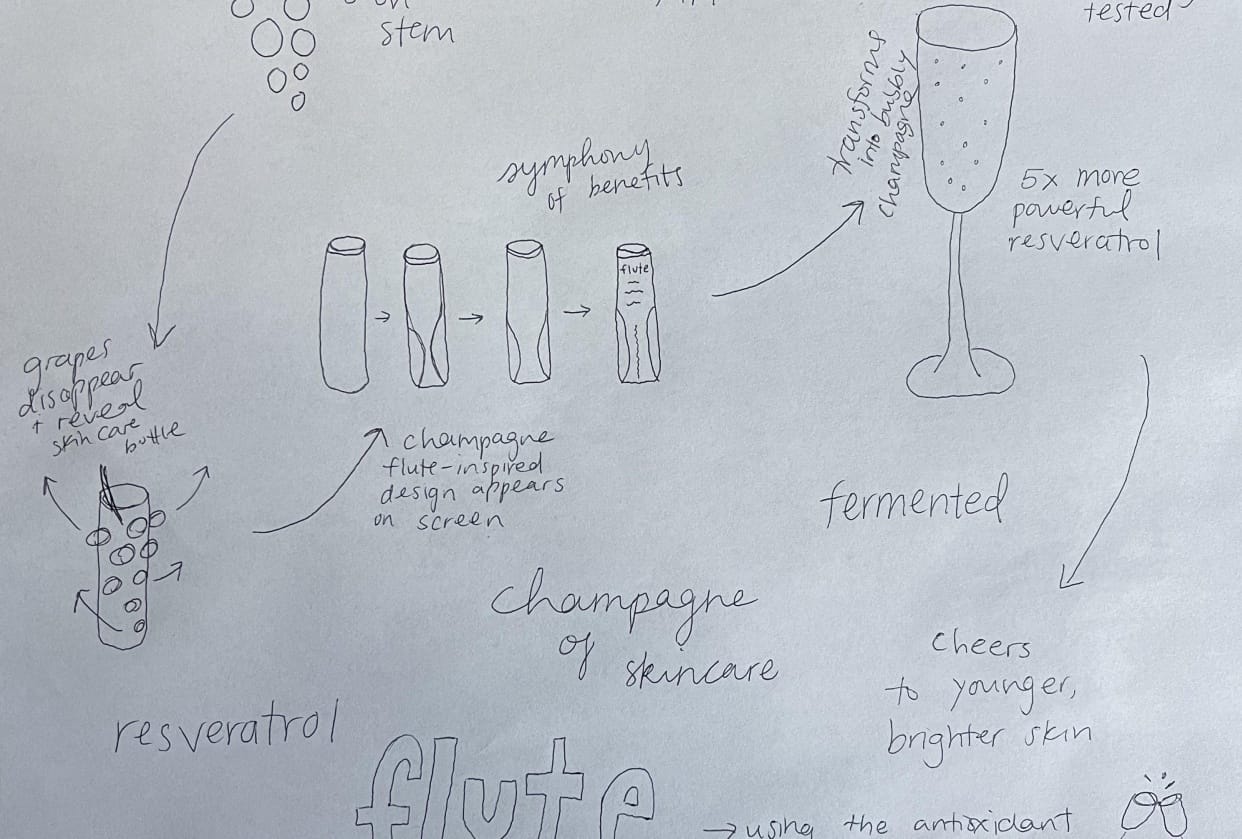 on
stem
tested
transforms
into bubbly
champagne
symphony
of benefits
5x more
powerful
resveratrol
flute
grapes
disappear
+ reveal
skin care
bottle
champagne
flute-inspired
design appears
on screen
fermented
champagne
of
skincare
cheers
to younger,
brighter skin
resveratrol
flute
→ using the antioxidant